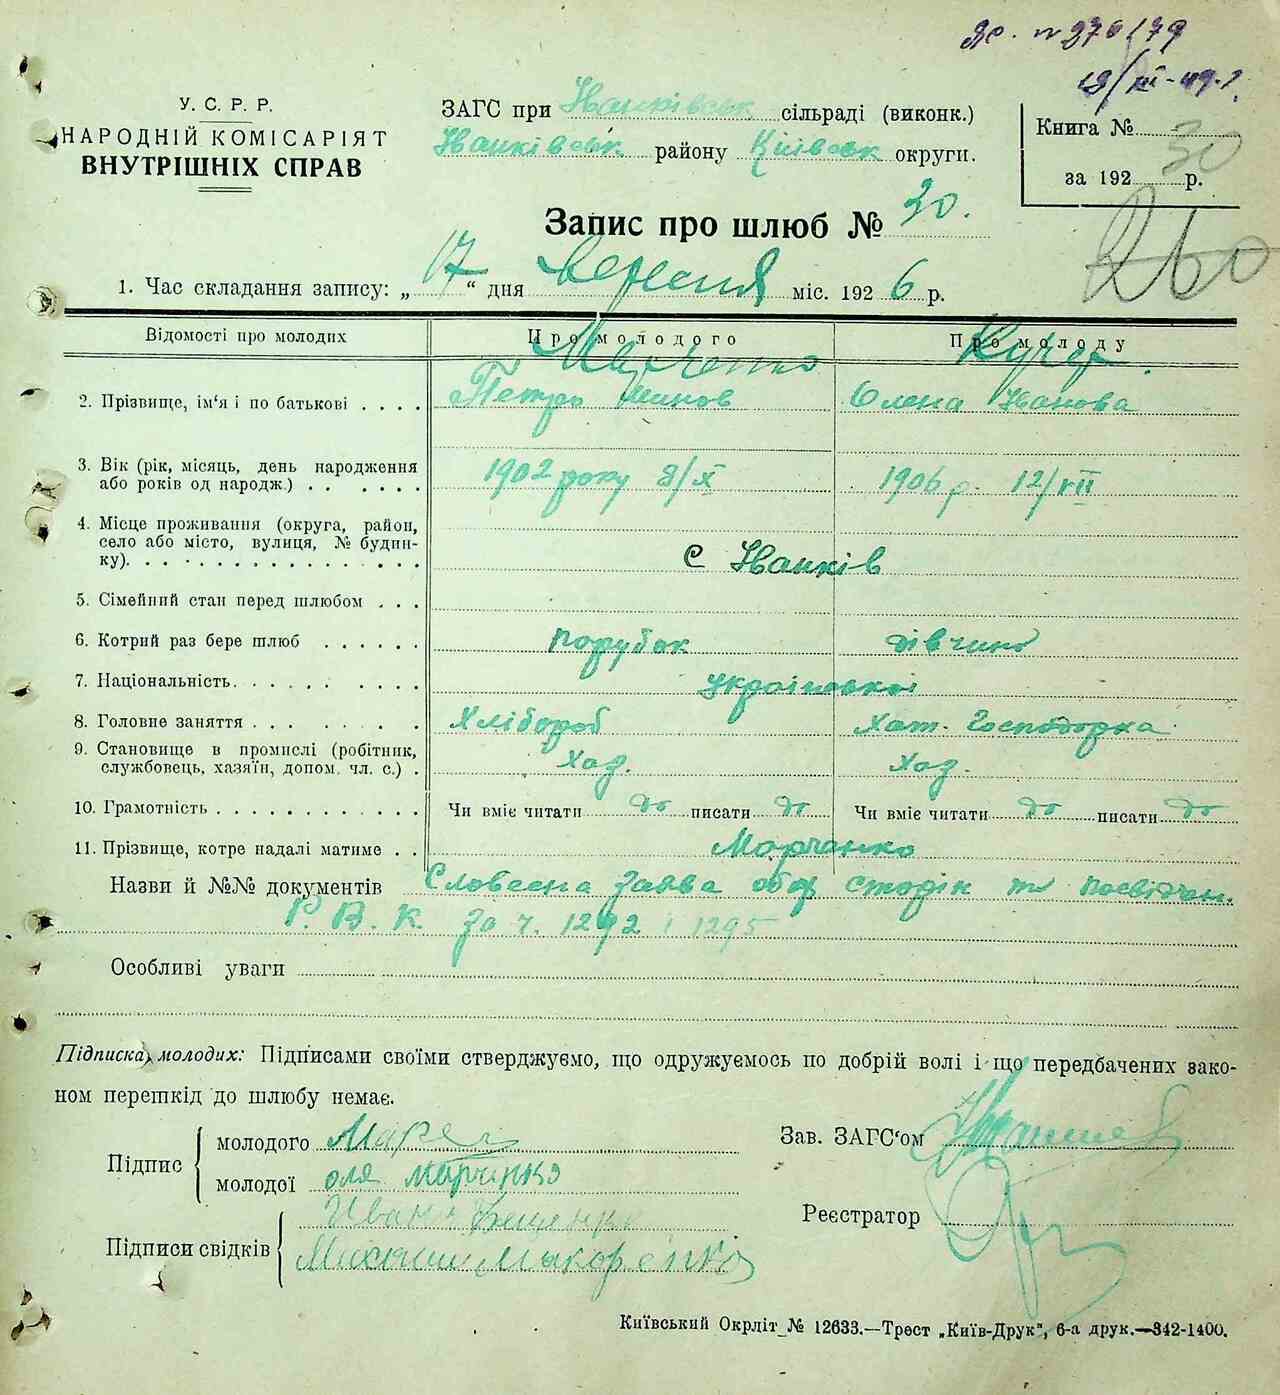 У. С. Р. Р.
НАРОДНІЙ КОМІСАРІЯТ
ВНУТРІШНІХ СПРАВ
ЗАГС при Іванківськ сільраді (виконк.)
Іванківськ району Київськ округи.
Книга №
30
за 192 р.
260
Запис про шлюб № 30.
1. Час складання запису: „17“ дня вересня міс. 1926 р.
Відомості про молодих Про молодого Про молоду
Марченко
2. Прізвище, ім‘я і по батькові . . . . Петро Олена Іванова
3. Вік (рік, місяць, день народження
або років од народж.) . . . . . . . 1902 року 8/X 1906 р. 12/VII
4. Місце проживання (округа, район,
село або місто, вулиця, № будин-
ку). . . . . . . . . . . . . . . . с Іванків
5. Сімейний стан перед шлюбом . . .
6. Котрий раз бере шлюб . . . . . . парубок дівчина
7. Національність. . . . . . . . . . української
8. Головне заняття . . . . . . . . . Хлібороб Хат. Господорка
9. Становище в промислі (робітник,
службовець, хазяїн, допом. чл. с.) . Хаз. Хаз.
10. Грамотність . . . . . . . . . . . Чи вміє читати до писати до Чи вміє читати до писати до
11. Прізвище, котре надалі матиме . . Марченко
Назви й №№ документів Словесна заява обох сторін та посвідчен.
Р. В. К. за ч. 1292 і 1295
Особливі уваги
Підписка молодих: Підписами своїми стверджуємо, що одружуємось по добрій волі і що передбачених зако-
ном перешкід до шлюбу немає.
Підпис
молодого
молодої оля марчинко
Зав. ЗАГС‘ом
Реєстратор
Підписи свідків
Иван
Михаил Макаренко
Київський Окрліт № 12633.—Трест „Київ-Друк“, 6-а друк.—342-1400.